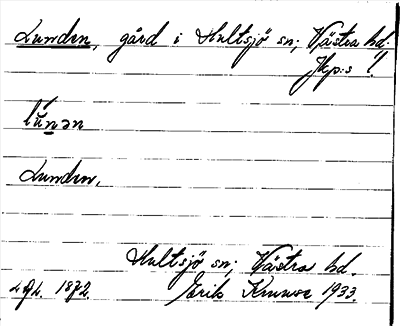 Lunden, gård i Hultsjö sn; Västra hd.
Jkp:s l
lúnən
Lunden,
Hultsjö sn; Västra hd.
1872. Erik Knuuse 1933.